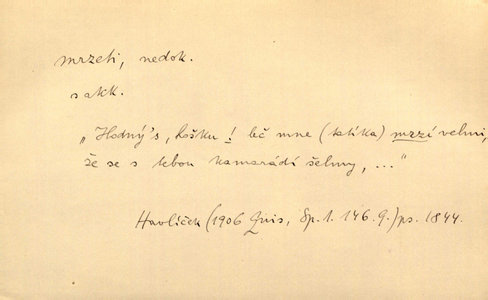 mrzeti, nedok.
s akk.
„Hodný's, hošku! leč mne (tatíka) mrzí velmi,
že se s tebou kamarádí šelmy, ..."
Havlíček (1906 Quis, Sp. 1. 146. 9.) ps. 1844.